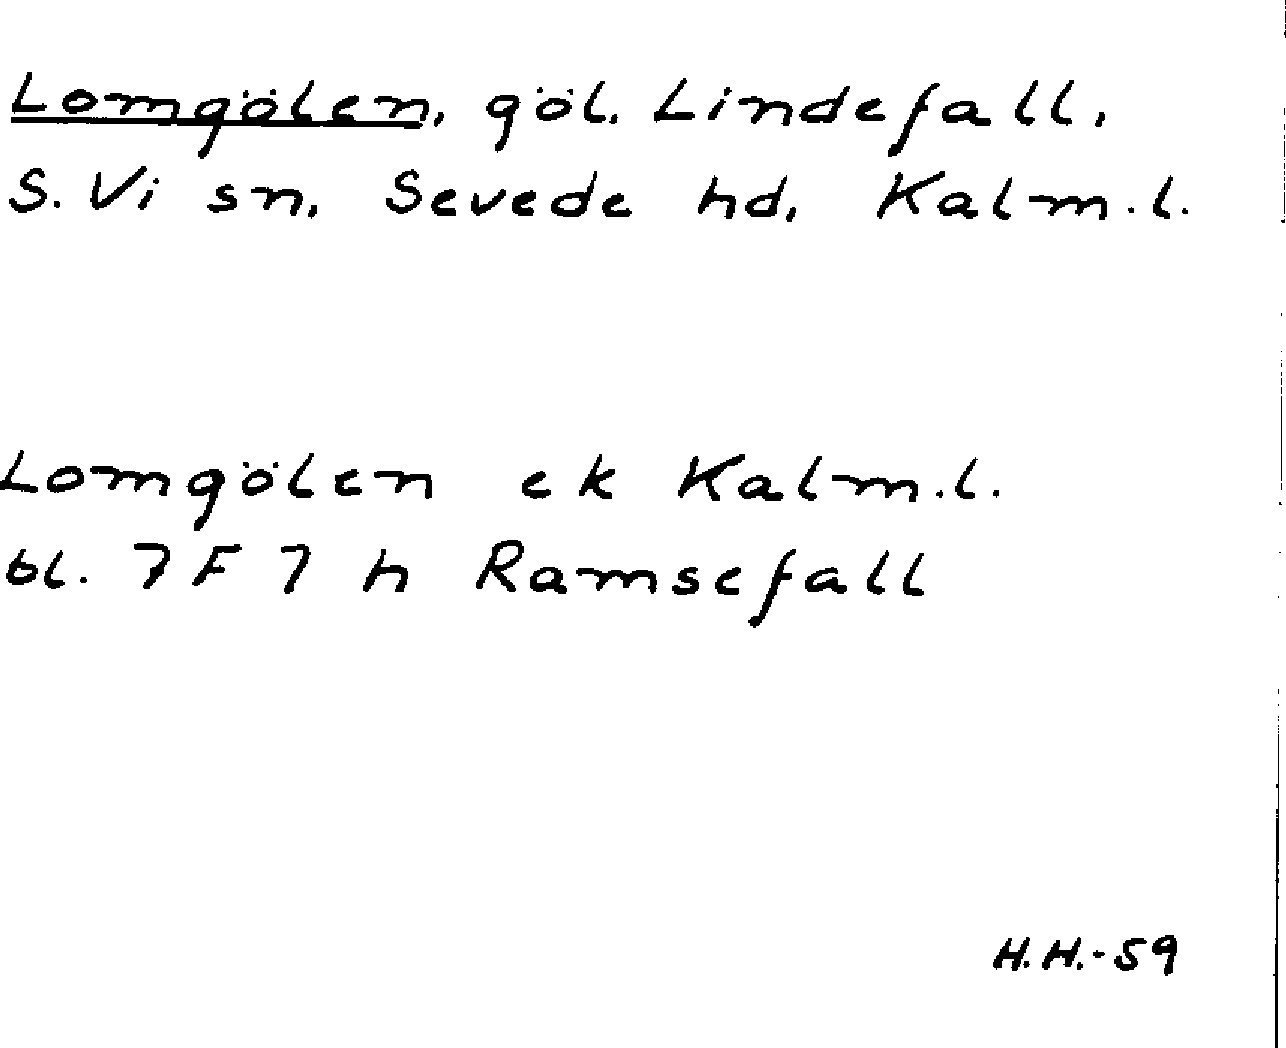 Lomgölen, göl, Lindefall,
S. Vi sn, Sevede hd, Kalm.l.
Lomgölen ek Kalm.l.
bl. 7F 7 h Ramsefall
H.H.-59